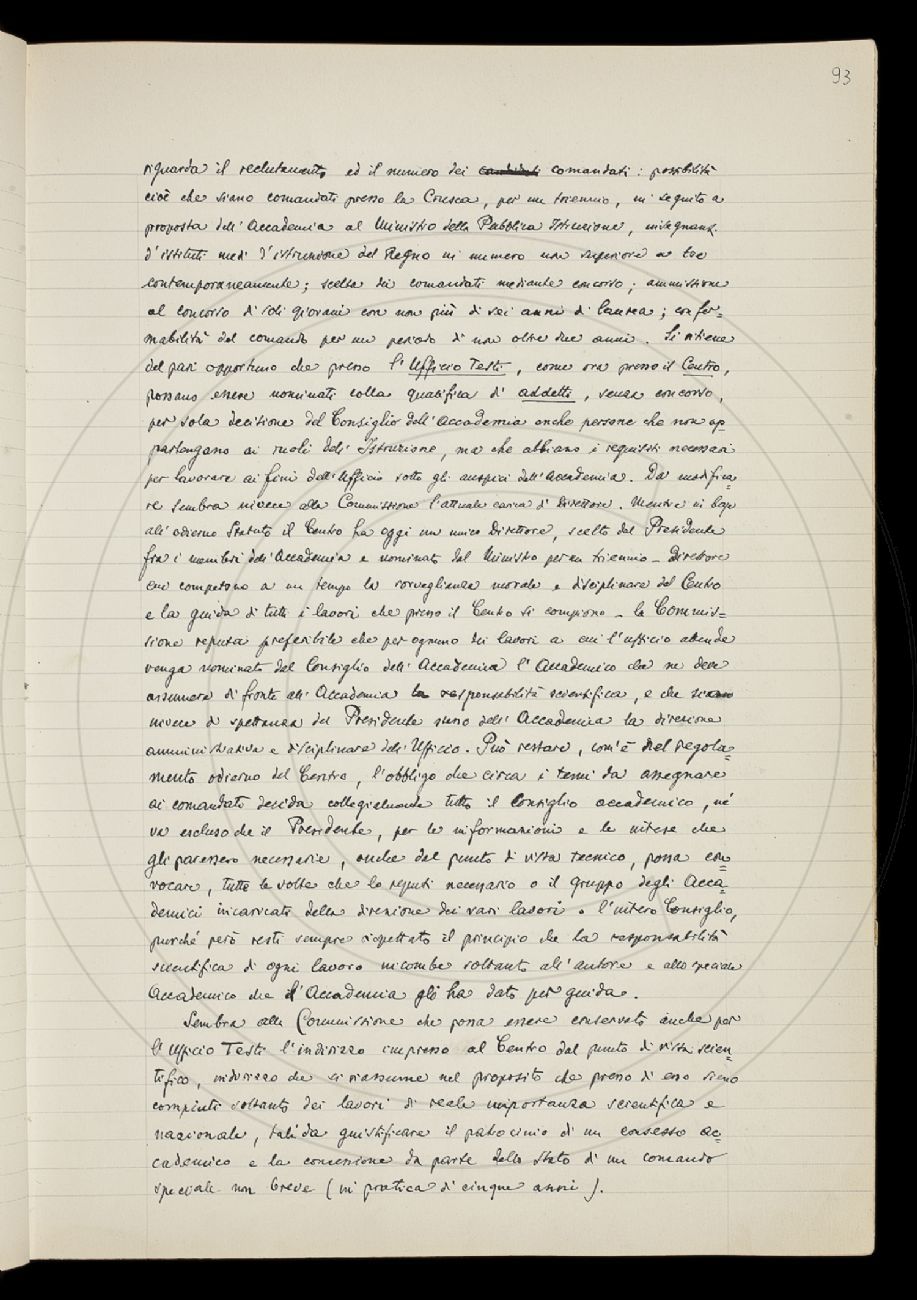 93
riguarda il reclutamento ed il numero dei candidati comandati: possibilità
cioè che siano comandati presso la Crusca, per un triennio, in seguito a
proposta dell'Accademia al Ministro della Pubblica Istruzione, insegnanti
d'istituti medi d'istruzione del Regno in numero non superiore a tre
contemporaneamente; scelta dei comandati mediante concorso; ammissione
al concorso di soli giovani con non più di sei anni di laurea; confer=
mabilità del comando per un periodo di non oltre due anni. Si ritiene
del pari opportuno che presso l'Ufficio Testi, come ora presso il Centro,
possano essere nominati colla qualifica di addetti, senza concorso,
per sola decisione del Consiglio dell'Accademia anche persone che non ap
partengano ai ruoli dell'Istruzione, ma che abbiano i requisiti necessari
per lavorare ai fini dell'Ufficio sotto gli auspici dell'Accademia. Da modifica=
re sembra invece alla Commissione l'attuale carica di Direttore. Mentre in base
all'odierno Statuto il Centro ha oggi un unico Direttore, scelto dal Presidente
fra i membri dell'Accademia e nominato dal Ministro per un triennio - Direttore
cui competono a un tempo la sorveglianza morale e disciplinare del Centro
e la guida di tutti i lavori che presso il Centro si compiono - la Commis=
sione reputa preferibile che per ognuno dei lavori a cui l'ufficio attende
venga nominato dal Consiglio dell'Accademia l'Accademico che ne deve
assumere di fronte all'Accademia la responsabilità scientifica, e che
invece di spettanza del Presidente stesso dell'Accademia la direzione
amministrativa e disciplinare dell'Ufficio. Può restare, com'è nel regola=
mento odierno del Centro, l'obbligo che circa i temi da assegnare
ai comandati decida collegialmente tutto il Consiglio accademico, né
va escluso che il Presidente, per le informazioni e le intese che
gli paressero necessarie, anche dal punto di vista tecnico, possa con=
vocare, tutte le volte che lo reputi necessario o il gruppo degli Acca=
demici incaricati della direzione dei vari lavori o l'intero Consiglio,
purché però resti sempre rispettato il principio che la responsabilità
scientifica di ogni lavoro incombe soltanto all'autore e allo speciale
Accademico che l'Accademia gli ha dato per guida.
Sembra alla Commissione che possa essere conservato anche per
l'Ufficio Testi l'indirizzo impresso al Centro dal punto di vista scien=
tifico, indirizzo che si riassume nel proposito che presso di esso siano
compiuti soltanto dei lavori di reale importanza scientifica e
nazionale, tali da giustificare il patrocinio di un consesso ac=
cademico e la concessione da parte dello Stato di un comando
speciale non breve (in pratica di cinque anni).